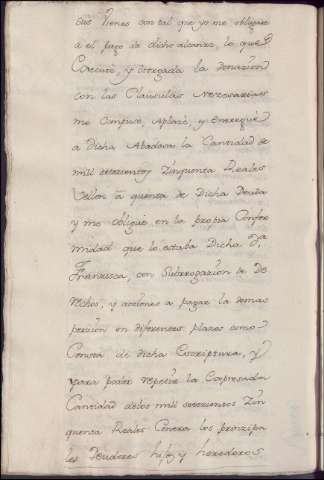 sus vienes con tal que yo me obligase
a el pago de dicho alcanze, lo que
Execute, y otorgada la donazion
con las Clausulas Nezesarias
me Compuse, Aplazè, y entreguè
a Dicha Abadesa la Cantidad de
mill setezientos Zinquenta Reales
Vellon à quenta de Dicha Deuda
y me obliguè en la propia Confor
midad que lo estaba Dicha D.ª
Franzisca, con Subrrogazion de De
rechos, y acziones a pagar la demas
porzion en diferentes plazos como
Consta de dicha Escriptura, y
para poder repetir la Expresada
Cantidad delos mil setezientos Zin
quenta Reales Contra los prinzipa
les Deudores hijos y herederos